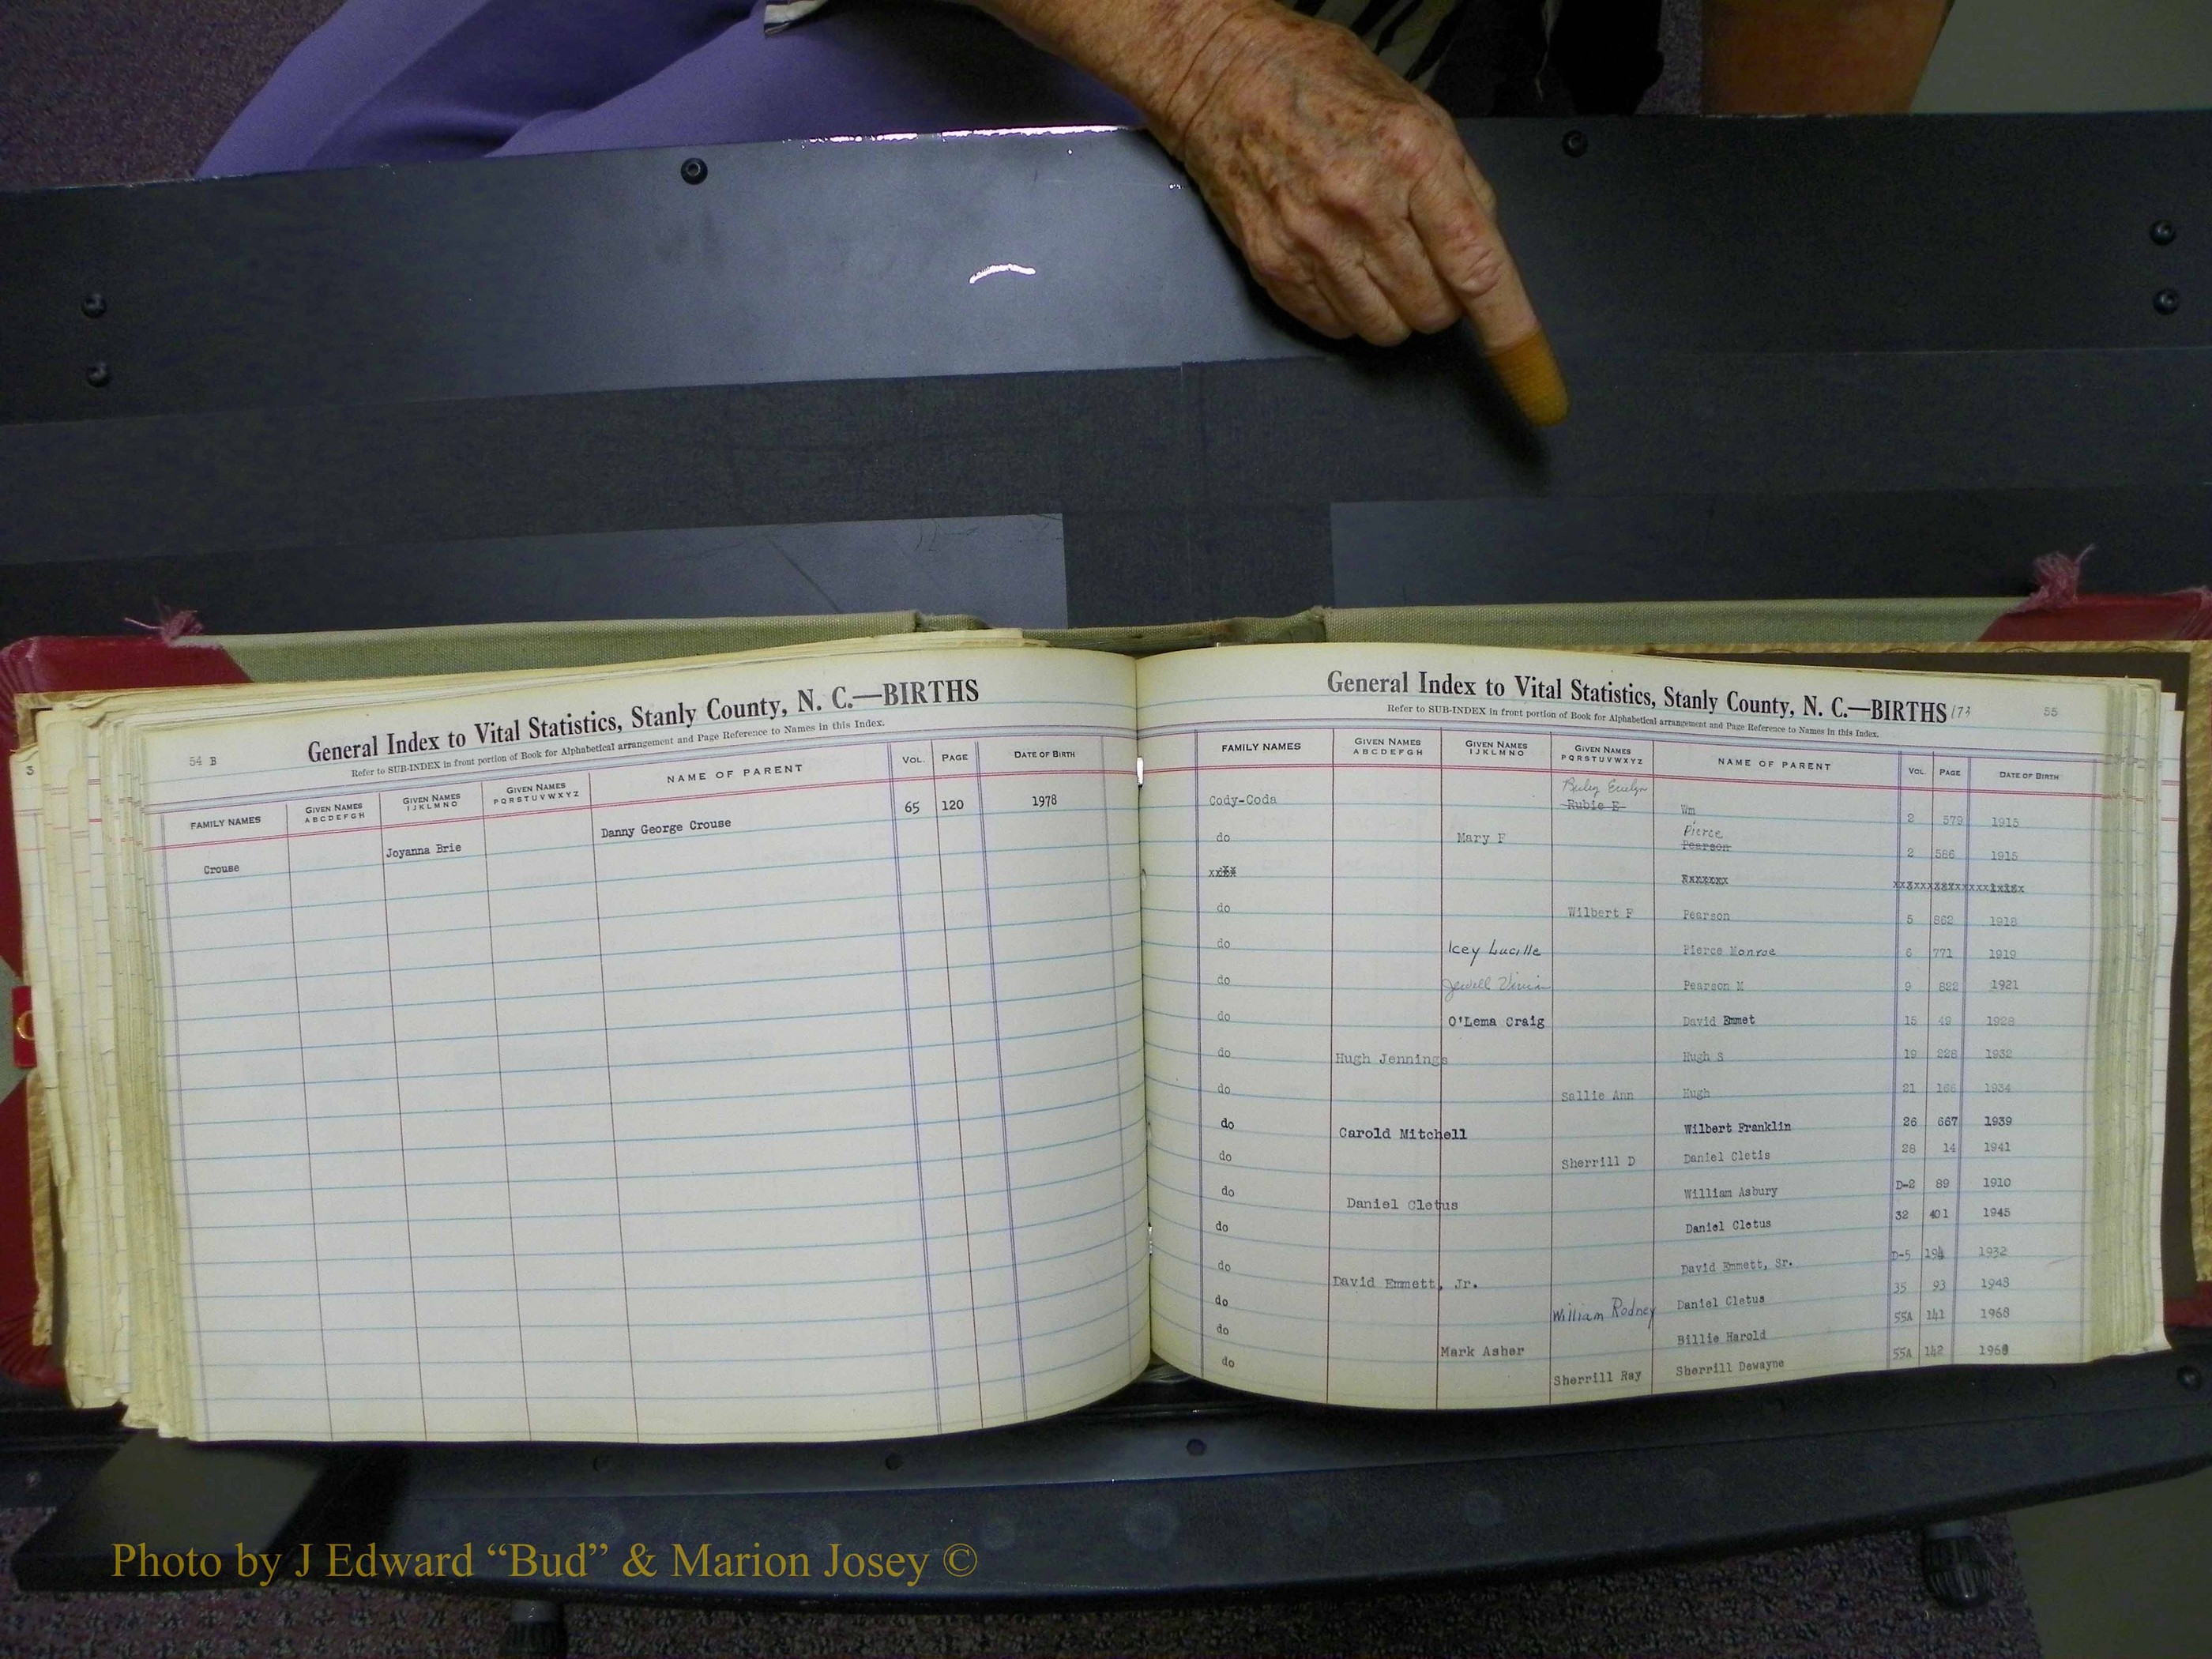 54 B
General Index to Vital Statistics, Stanly County, N. C.—BIRTHS
Refer to SUB-INDEX in front portion of Book for Alphabetical arrangement and Page Reference to Names in this Index.
FAMILY NAMES GIVEN NAMES ABCDEFGH GIVEN NAMES IJKLMNO GIVEN NAMES PQRSTUVWXYZ NAME OF PARENT VOL. PAGE DATE OF BIRTH
Crouse Joyanna Brie Danny George Crouse 65 120 1978
General Index to Vital Statistics, Stanly County, N. C.—BIRTHS 173 55
Refer to SUB-INDEX in front portion of Book for Alphabetical arrangement and Page Reference to Names in this Index.
FAMILY NAMES GIVEN NAMES ABCDEFGH GIVEN NAMES IJKLMNO GIVEN NAMES PQRSTUVWXYZ NAME OF PARENT VOL. PAGE DATE OF BIRTH
Cody-Coda Rubie E Wm 2 579 1915
Pierce
do Mary F Pearson 2 586 1915
do Wilbert F Pearson 5 862 1918
do Icey Lucille Pierce Monroe 6 771 1919
do Jewell Vivian Pearson M 9 882 1921
do O'Lema Craig David Emmet 15 49 1928
do Hugh Jennings Hugh S 19 228 1932
do Sallie Ann Hugh 21 166 1934
do Carold Mitchell Wilbert Franklin 26 667 1939
do Sherrill D Daniel Cletis 28 14 1941
do Daniel Cletus William Asbury D-2 89 1910
do Daniel Cletus 32 401 1945
do David Emmett, Jr. David Emmett, Sr. D-5 194 1932
do William Rodney Daniel Cletus 35 93 1948
do Mark Asher Billie Harold 55A 141 1968
do Sherrill Ray Sherrill Dewayne 55A 142 1968
Photo by J Edward “Bud” & Marion Josey ©